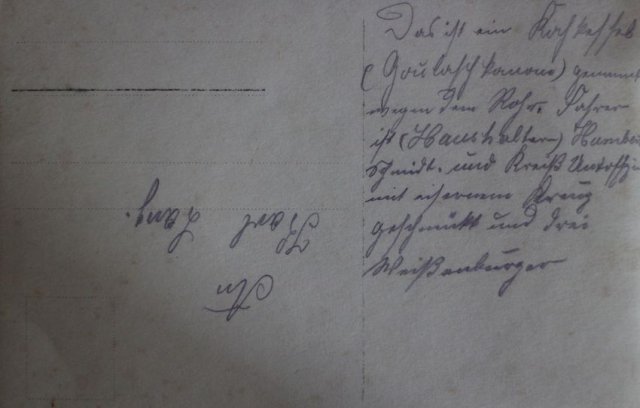 Das ist ein Kochkessel
(Goulaschkanone) genannt
wegen dem Rohr. Fahrer
ist (Haushalter)
Schmidt. und Kreiß Untoffz
mit eisernem Kreuz
geschmükt und drei
Weißenburger
An
Karl Lang.